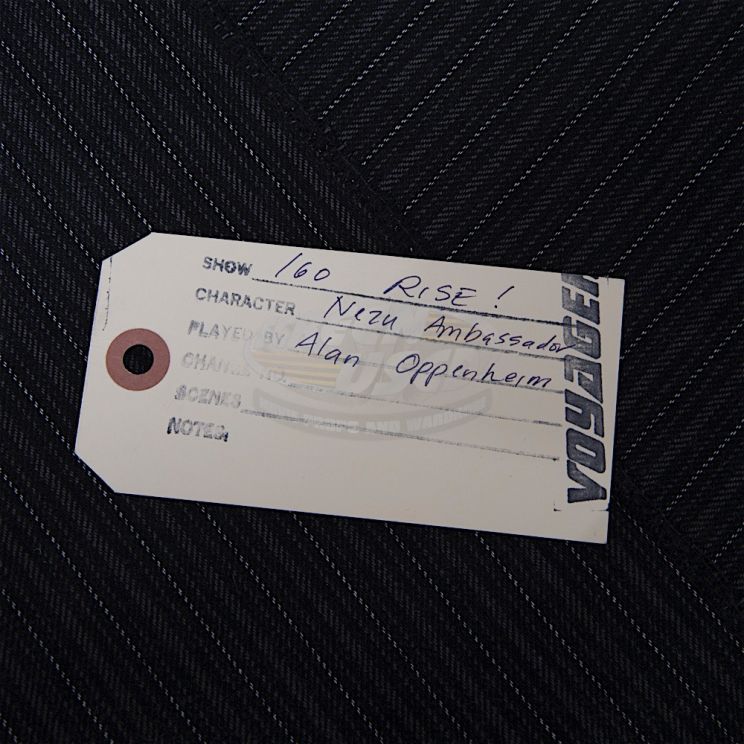 SHOW 160 RISE!
CHARACTER Nezu Ambassador
PLAYED BY Alan Oppenheim
CHANGE NO.
SCENES
NOTES:
VOYAGER